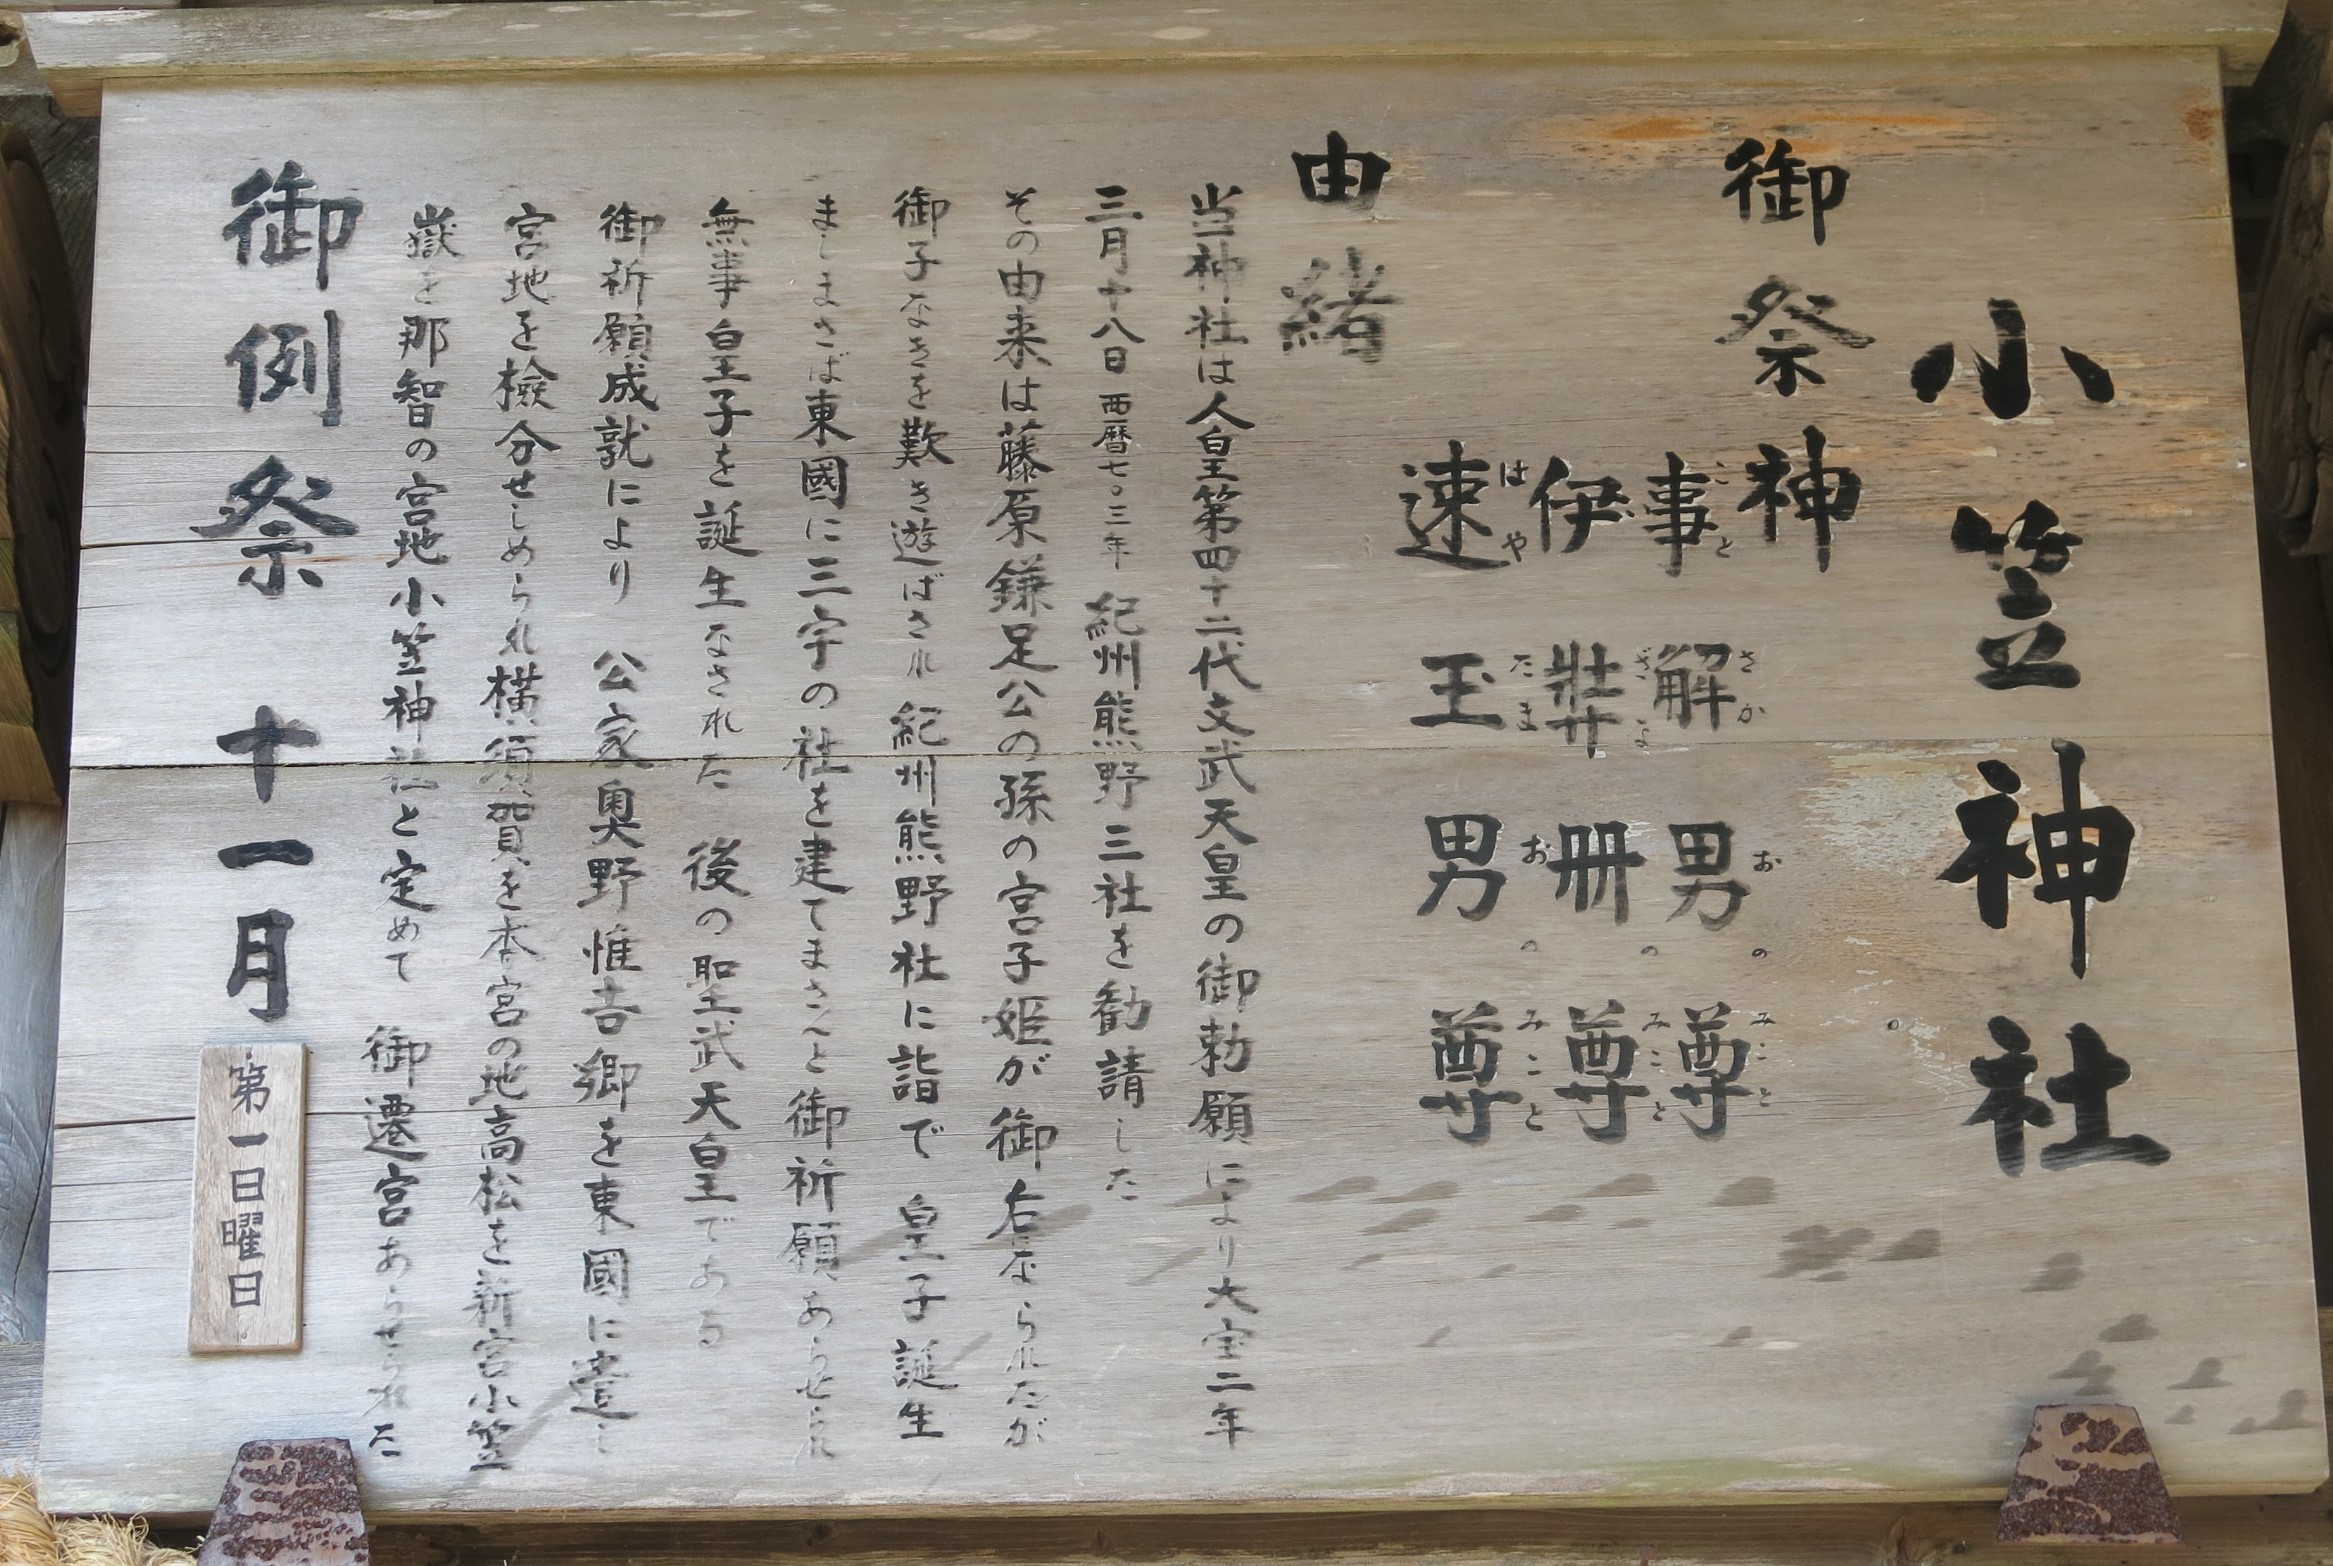 小笠神社
御祭神
事解男尊
ことさかおのみこと
伊弉冊尊
ざなのみこと
速玉男尊
はやたまおのみこと
由緒
当神社は人皇第四十二代文武天皇の御勅願により大宝二年
三月十八日 西暦七〇三年 紀州熊野三社を勧請した
その由来は藤原鎌足公の孫の宮子姫が御右なられたが
御子なきを歎き遊ばされ 紀州熊野社に詣で 皇子誕生
ましまさば東國に三宇の社を建てまさんと御祈願あらせられ
無事皇子を誕生なされた 後の聖武天皇である
御祈願成就により 公家奥野惟吉卿を東國に遣し
宮地を檢分せしめられ横須賀を本宮の地高松を新宮小笠
嶽を那智の宮地小笠神社と定めて 御遷宮あらせられた
御例祭 十一月 第一日曜日